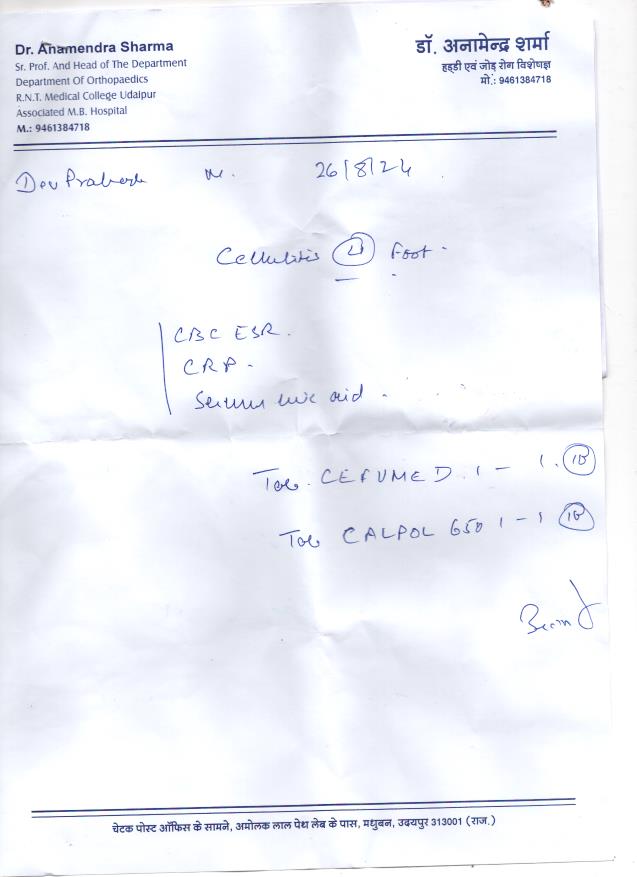 Dr. Anamendra Sharma
Sr. Prof. And Head of The Department
Department Of Orthopaedics
R.N.T. Medical College Udaipur
Associated M.B. Hospital
M.: 9461384718
डॉ. अनामेन्द्र शर्मा
हड्डी एवं जोड़ रोग विशेषज्ञ
मो.: 9461384718
Dev Prakash M. 26/8/24
Cellulitis Foot.
CBC ESR.
CRP.
Serum uric acid.
Tab. CEFUMED 1 - 1. 10
Tab CALPOL 650 1 - 1 10
चेटक पोस्ट ऑफिस के सामने, अमोलक लाल पेथ लेब के पास, मधुबन, उदयपुर 313001 (राज.)